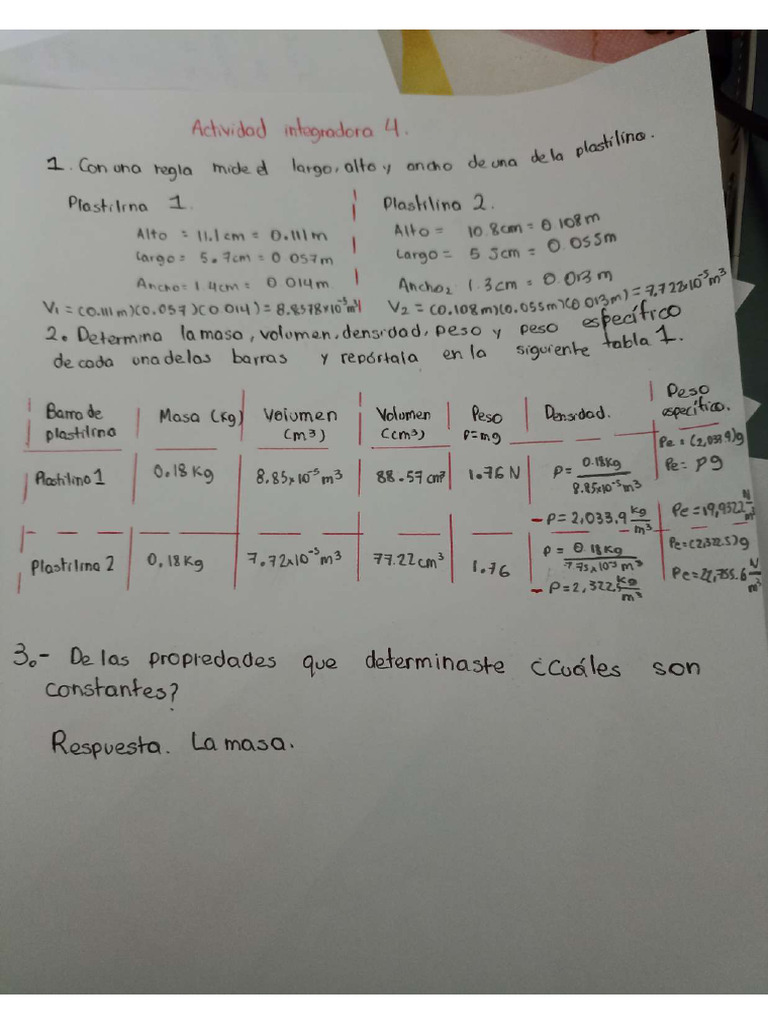 Actividad integradora 4.
1. Con una regla mide el largo, alto y ancho de una de la plastilina.
Plastilina 1.
Alto = 11.1cm = 0.111m
Largo = 5.7cm = 0.057m
Ancho = 1.4cm = 0.014m
V₁ = (0.111m)(0.057)(0.014) = 8.8578x10⁻⁵m⁴
Plastilina 2.
Alto = 10.8cm = 0.108m
Largo = 5.5cm = 0.055m
Ancho₂ 1.3cm = 0.013m
V₂ = (0.108m)(0.055m)(0.013m) = 7.722x10⁻⁵m³
2. Determina la masa, volumen, densidad, peso y peso específico
de cada una de las barras y repórtala en la siguiente tabla 1.
Barra de plastilina | Masa (Kg) | Volumen (m³) | Volumen (cm³) | Peso P=mg | Densidad. | Peso específico.
Pe = (2,033.9)g
Plastilina 1 | 0.18Kg | 8.85x10⁻⁵m³ | 88.57cm³ | 1.76 N | ρ = 0.18Kg / 8.85x10⁻⁵m³ | Pe = ρg
- ρ = 2,033.9 Kg/m³ | Pe = 19,932.2 N/m³
Plastilina 2 | 0.18Kg | 7.72x10⁻⁵m³ | 77.22cm³ | 1.76 | ρ = 0.18Kg / 7.75x10⁻⁵m³ | Pe = (2,322.5)g
- ρ = 2,322.5 Kg/m³ | Pe = 22,755.6 N/m³
3.- De las propredades que determinaste ¿Cuáles son
constantes?
Respuesta. La masa.